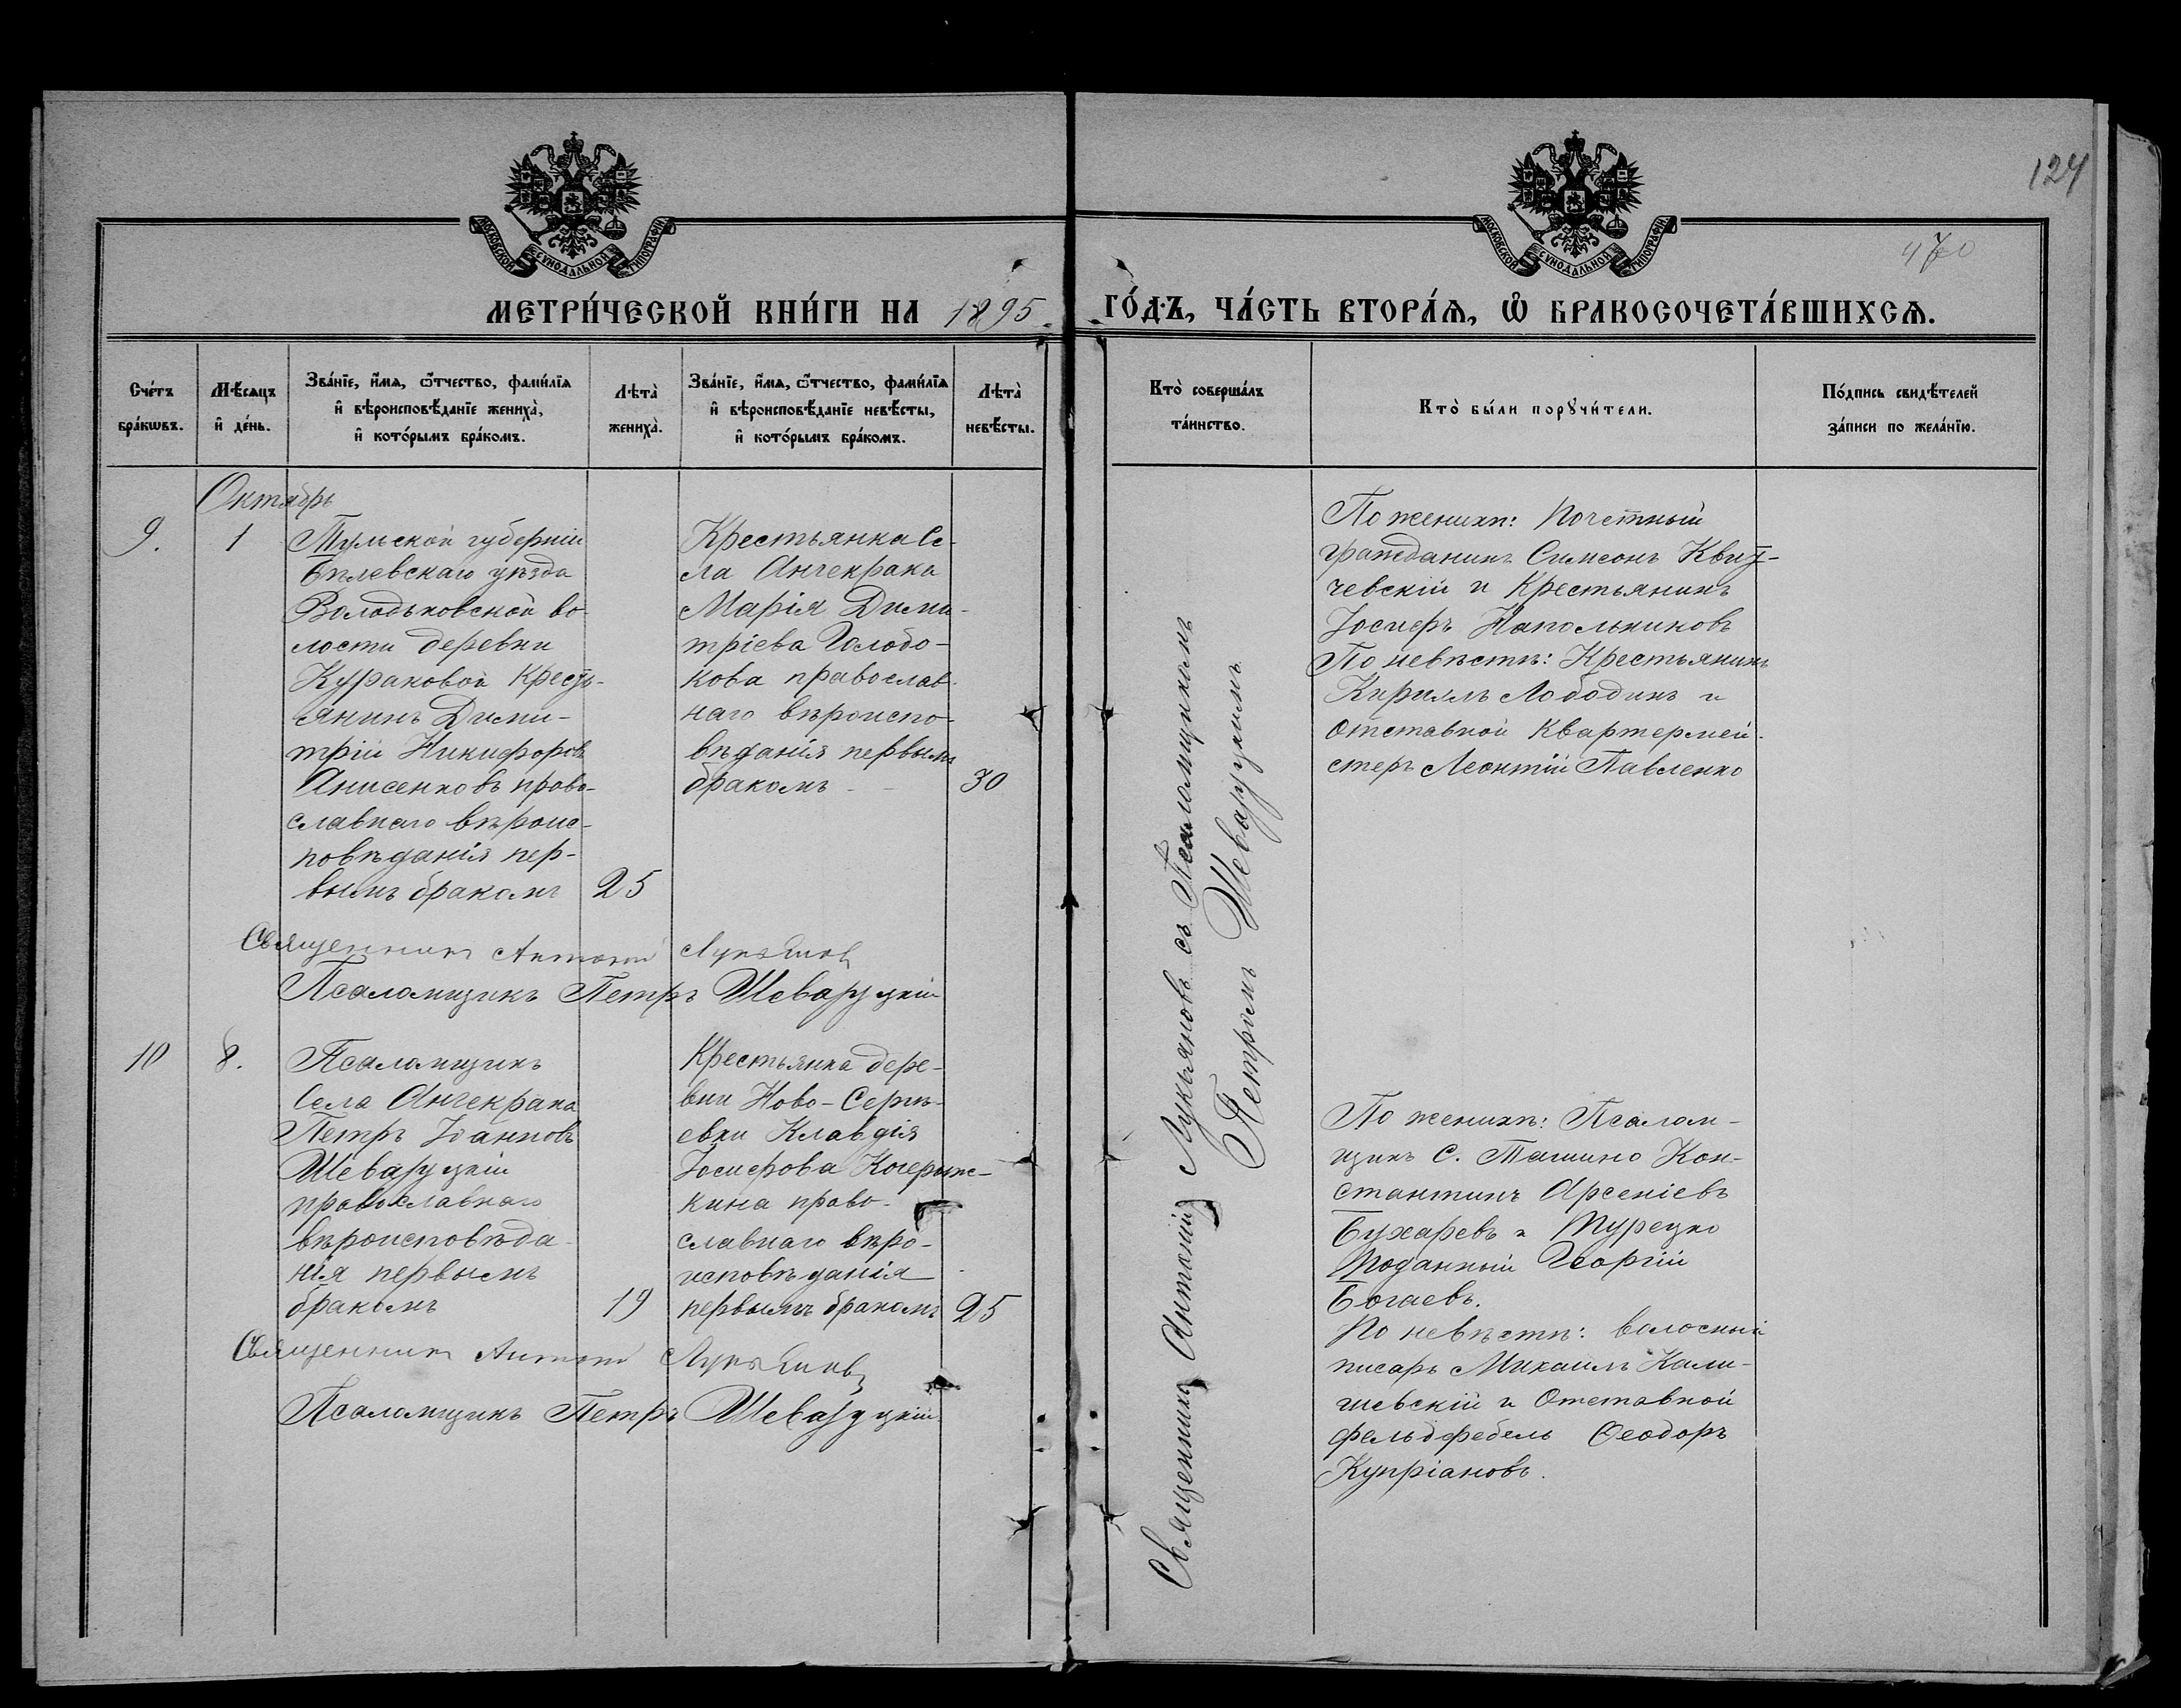 МОСКОВСКОЙ СѴНОДАЛЬНОЙ ТИПОГРАФІИ
МОСКОВСКОЙ СѴНОДАЛЬНОЙ ТИПОГРАФІИ
124
470
МЕТРИ́ЧЕСКОЙ КНИ́ГИ НА 1895 ГО́ДЪ, ЧА́СТЬ ВТОРА́Ѧ, Ѽ БРАКОСОЧЕТА́ВШИХСѦ.
Сче́тъ
бра́кѡвъ.
Мѣ́сяцъ
и҆ де́нь.
Зва́нїе, и҆́мя, ѻ҆́тчество, фами́лїя
и҆ вѣроисповѣ́данїе жениха̀,
и҆ кото́рымъ бра́комъ.
Лѣта̀
жениха̀.
Зва́нїе, и҆́мя, ѻ҆́тчество, фами́лїя
и҆ вѣроисповѣ́данїе невѣ́сты,
и҆ кото́рымъ бра́комъ.
Лѣта̀
невѣ́сты.
Кто̀ соверша́лъ
та́инство.
Кто̀ бы́ли порꙋчи́тели.
По́дпись свидѣ́телей
за́писи по жела́нїю.
Октябрь
9.
1
Тульской губерніи
Бѣлевскаго уѣзда
Володьковской во-
лости деревни
Кураковой Кресть-
янинъ Дими-
трій Никифоровъ
Анисенковъ право-
славнаго вѣроис-
повѣданія пер-
вымъ бракомъ
25
Крестьянка Се-
ла Анчекрака
Марія Дими-
тріева Голобо-
кова православ-
наго вѣроиспо-
вѣданія первымъ
бракомъ
30
По женихѣ: Почетный
гражданинъ Симеонъ
чевскій и Крестьянинъ
Іосифъ Напольниковъ
По невѣстѣ: Крестьянинъ
Кириллъ Лободинъ и
отставной Квартермей-
стеръ Леонтій Павленко
Священникъ Антоній Лукьяновъ
Псаломщикъ Петръ Шеваруцкій
10
8.
Псаломщикъ
Села Анчекрака
Петръ Іоанновъ
Шеваруцкій
православнаго
вѣроисповѣда-
нія первымъ
бракомъ
19
Крестьянка дере-
вни Ново-Сергѣ-
евки Клавдія
Іосифова Кочерыж-
кина право-
славнаго вѣро-
исповѣданія
первымъ бракомъ
25
По женихѣ: Псалом-
щикъ с. Ташино Кон-
стантинъ Арсеніевъ
Бухаревъ и Турецко
подданный Георгій
Богаевъ.
По невѣстѣ: волосный
писарь Михаилъ Кали-
шевскій и Отставной
фельдфебель Ѳеодоръ
Купріановъ.
Священникъ Антоній Лукьяновъ
Псаломщикъ Петръ Шеваруцкій
Священникъ Антоній Лукьяновъ съ Псаломщикомъ
Петромъ Шеваруцкимъ